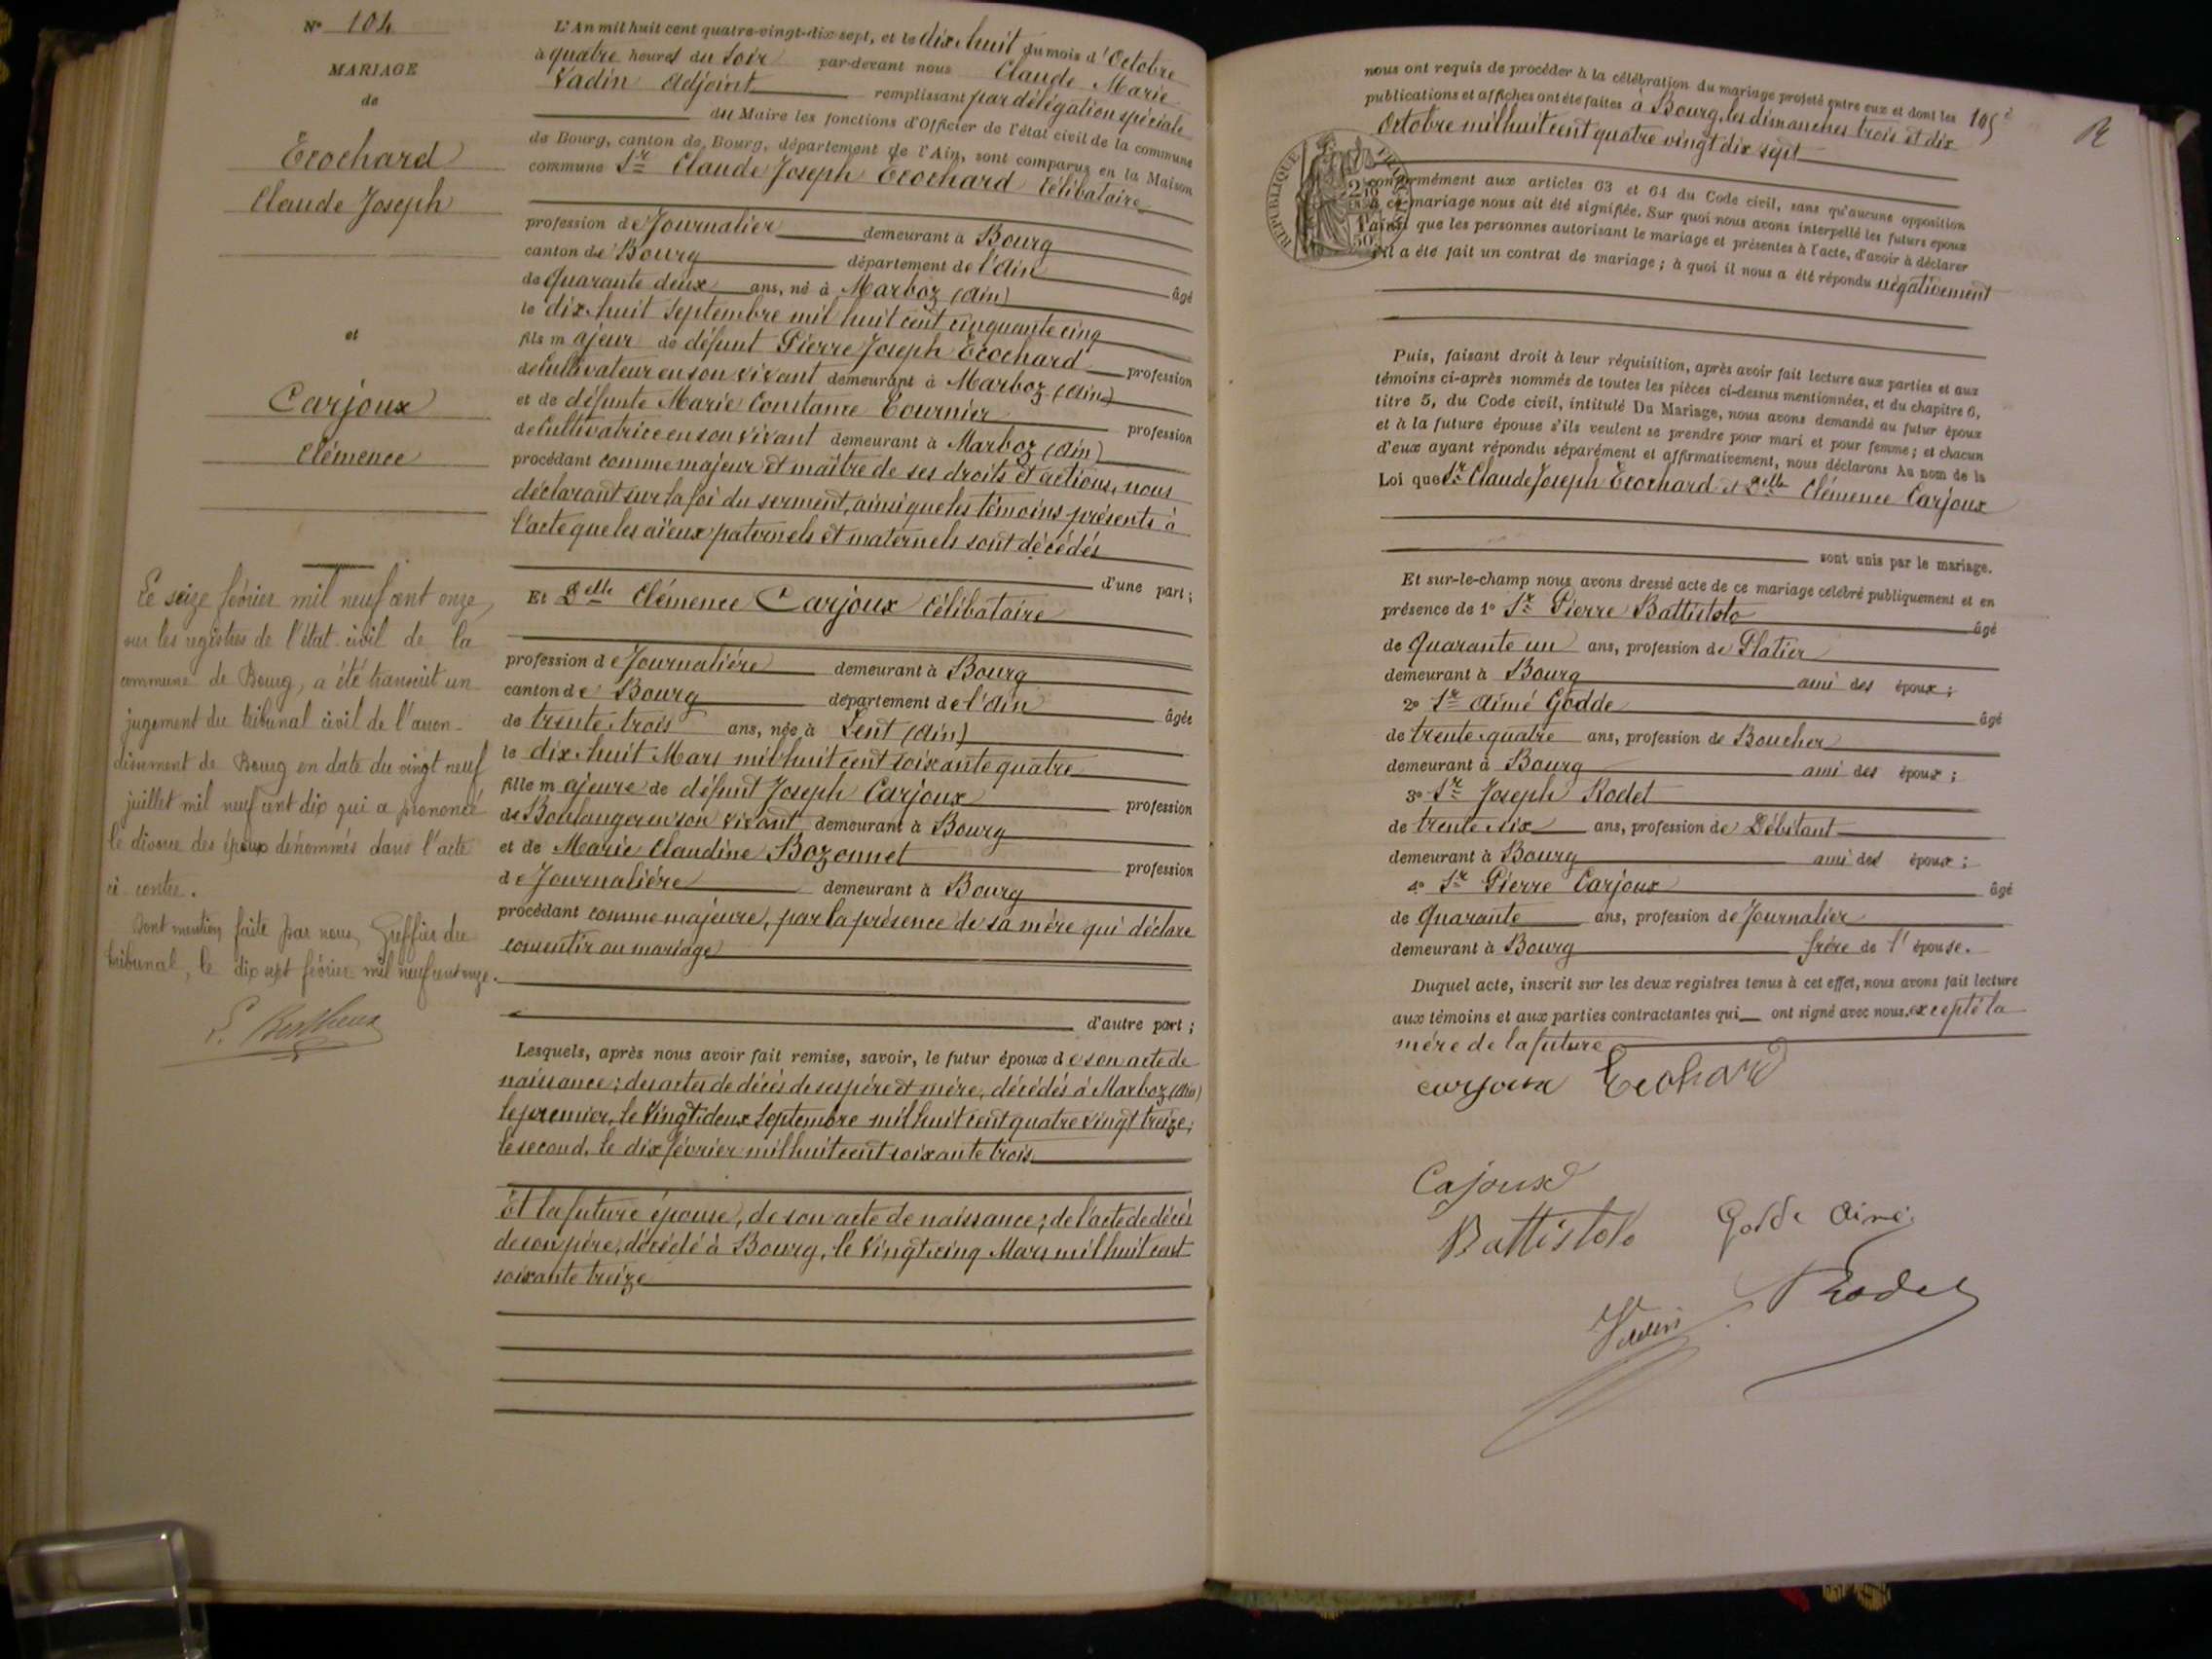 N° 104
MARIAGE
de
Ecochard
Claude Joseph
et
Carjoux
Clémence
Le seize février mil neuf cent onze,
sur les registres de l'état civil de la
commune de Bourg, a été transcrit un
jugement du tribunal civil de l'arron-
dissement de Bourg en date du vingt neuf
juillet mil neuf cent dix qui a prononcé
le divorce des époux dénommés dans l'acte
ci contre.
Dont mention faite par nous, Greffier du
tribunal, le dix sept février mil neuf cent onze.
L'An mil huit cent quatre-vingt-dix-sept, et le dix huit du mois d'Octobre
à quatre heures du soir par-devant nous Claude Marie
Vadin Adjoint remplissant par délégation spéciale
du Maire les fonctions d'Officier de l'état civil de la commune
de Bourg, canton de Bourg, département de l'Ain, sont comparus en la Maison
commune Sr Claude Joseph Ecochard célibataire
profession de Journalier demeurant à Bourg
canton de Bourg département de l'Ain
âgé
de quarante deux ans, né à Marboz (Ain)
le dix huit Septembre mil huit cent cinquante cinq
fils majeur de défunt Pierre Joseph Ecochard profession
de Cultivateur en son vivant demeurant à Marboz (Ain)
et de défunte Marie Constance Cournier profession
de Cultivatrice en son vivant demeurant à Marboz (Ain)
procédant comme majeur et maître de ses droits et actions, nous
déclarant sur la foi du serment, ainsi que les témoins présents à
l'acte que les aïeux paternels et maternels sont décédés
d'une part;
Et Delle Clémence Carjoux célibataire
profession de Journalière demeurant à Bourg
canton de Bourg département de l'Ain
âgée
de trente trois ans, née à Lent (Ain)
le dix huit Mars mil huit cent soixante quatre
fille majeure de défunt Joseph Carjoux profession
de Boulanger en son vivant demeurant à Bourg
et de Marie Claudine Bozonnet profession
de Journalière demeurant à Bourg
procédant comme majeure, par la présence de sa mère qui déclare
consentir au mariage
d'autre part;
Lesquels, après nous avoir fait remise, savoir, le futur époux de son acte de
naissance; des actes de décès de ses père et mère, décédés à Marboz (Ain)
le premier, le vingt deux Septembre mil huit cent quatre vingt treize;
le second, le dix février mil huit cent soixante trois
Et la future épouse, de son acte de naissance; de l'acte de décès
de son père, décédé à Bourg, le vingt cinq Mars mil huit cent
soixante treize
nous ont requis de procéder à la célébration du mariage projeté entre eux et dont les
publications et affiches ont été faites à Bourg, les dimanches trois et dix
Octobre mil huit cent quatre vingt dix sept
105e
R
RÉPUBLIQUE FRANÇAISE
conformément aux articles 63 et 64 du Code civil, sans qu'aucune opposition
à ce mariage nous ait été signifiée. Sur quoi nous avons interpellé les futurs époux
ainsi que les personnes autorisant le mariage et présentes à l'acte, d'avoir à déclarer
s'il a été fait un contrat de mariage; à quoi il nous a été répondu négativement
Puis, faisant droit à leur réquisition, après avoir fait lecture aux parties et aux
témoins ci-après nommés de toutes les pièces ci-dessus mentionnées, et du chapitre 6,
titre 5, du Code civil, intitulé Du Mariage, nous avons demandé au futur époux
et à la future épouse s'ils veulent se prendre pour mari et pour femme; et chacun
d'eux ayant répondu séparément et affirmativement, nous déclarons Au nom de la
Loi que Sr Claude Joseph Ecochard et Delle Clémence Carjoux
sont unis par le mariage.
Et sur-le-champ nous avons dressé acte de ce mariage célébré publiquement et en
présence de 1° Sr Pierre Battistolo âgé
de quarante un ans, profession de Platier
demeurant à Bourg ami des époux;
2° Sr Aimé Godde âgé
de trente quatre ans, profession de Boucher
demeurant à Bourg ami des époux;
3° Sr Joseph Rodet
de trente six ans, profession de Débitant
demeurant à Bourg ami des époux;
4° Sr Pierre Carjoux âgé
de quarante ans, profession de Journalier
demeurant à Bourg frère de l'épouse.
Duquel acte, inscrit sur les deux registres tenus à cet effet, nous avons fait lecture
aux témoins et aux parties contractantes qui ont signé avec nous, excepté la
mère de la future
carjoux Ecochard
Cajoux
Battistolo Godde Aimé
Vadin Rodet